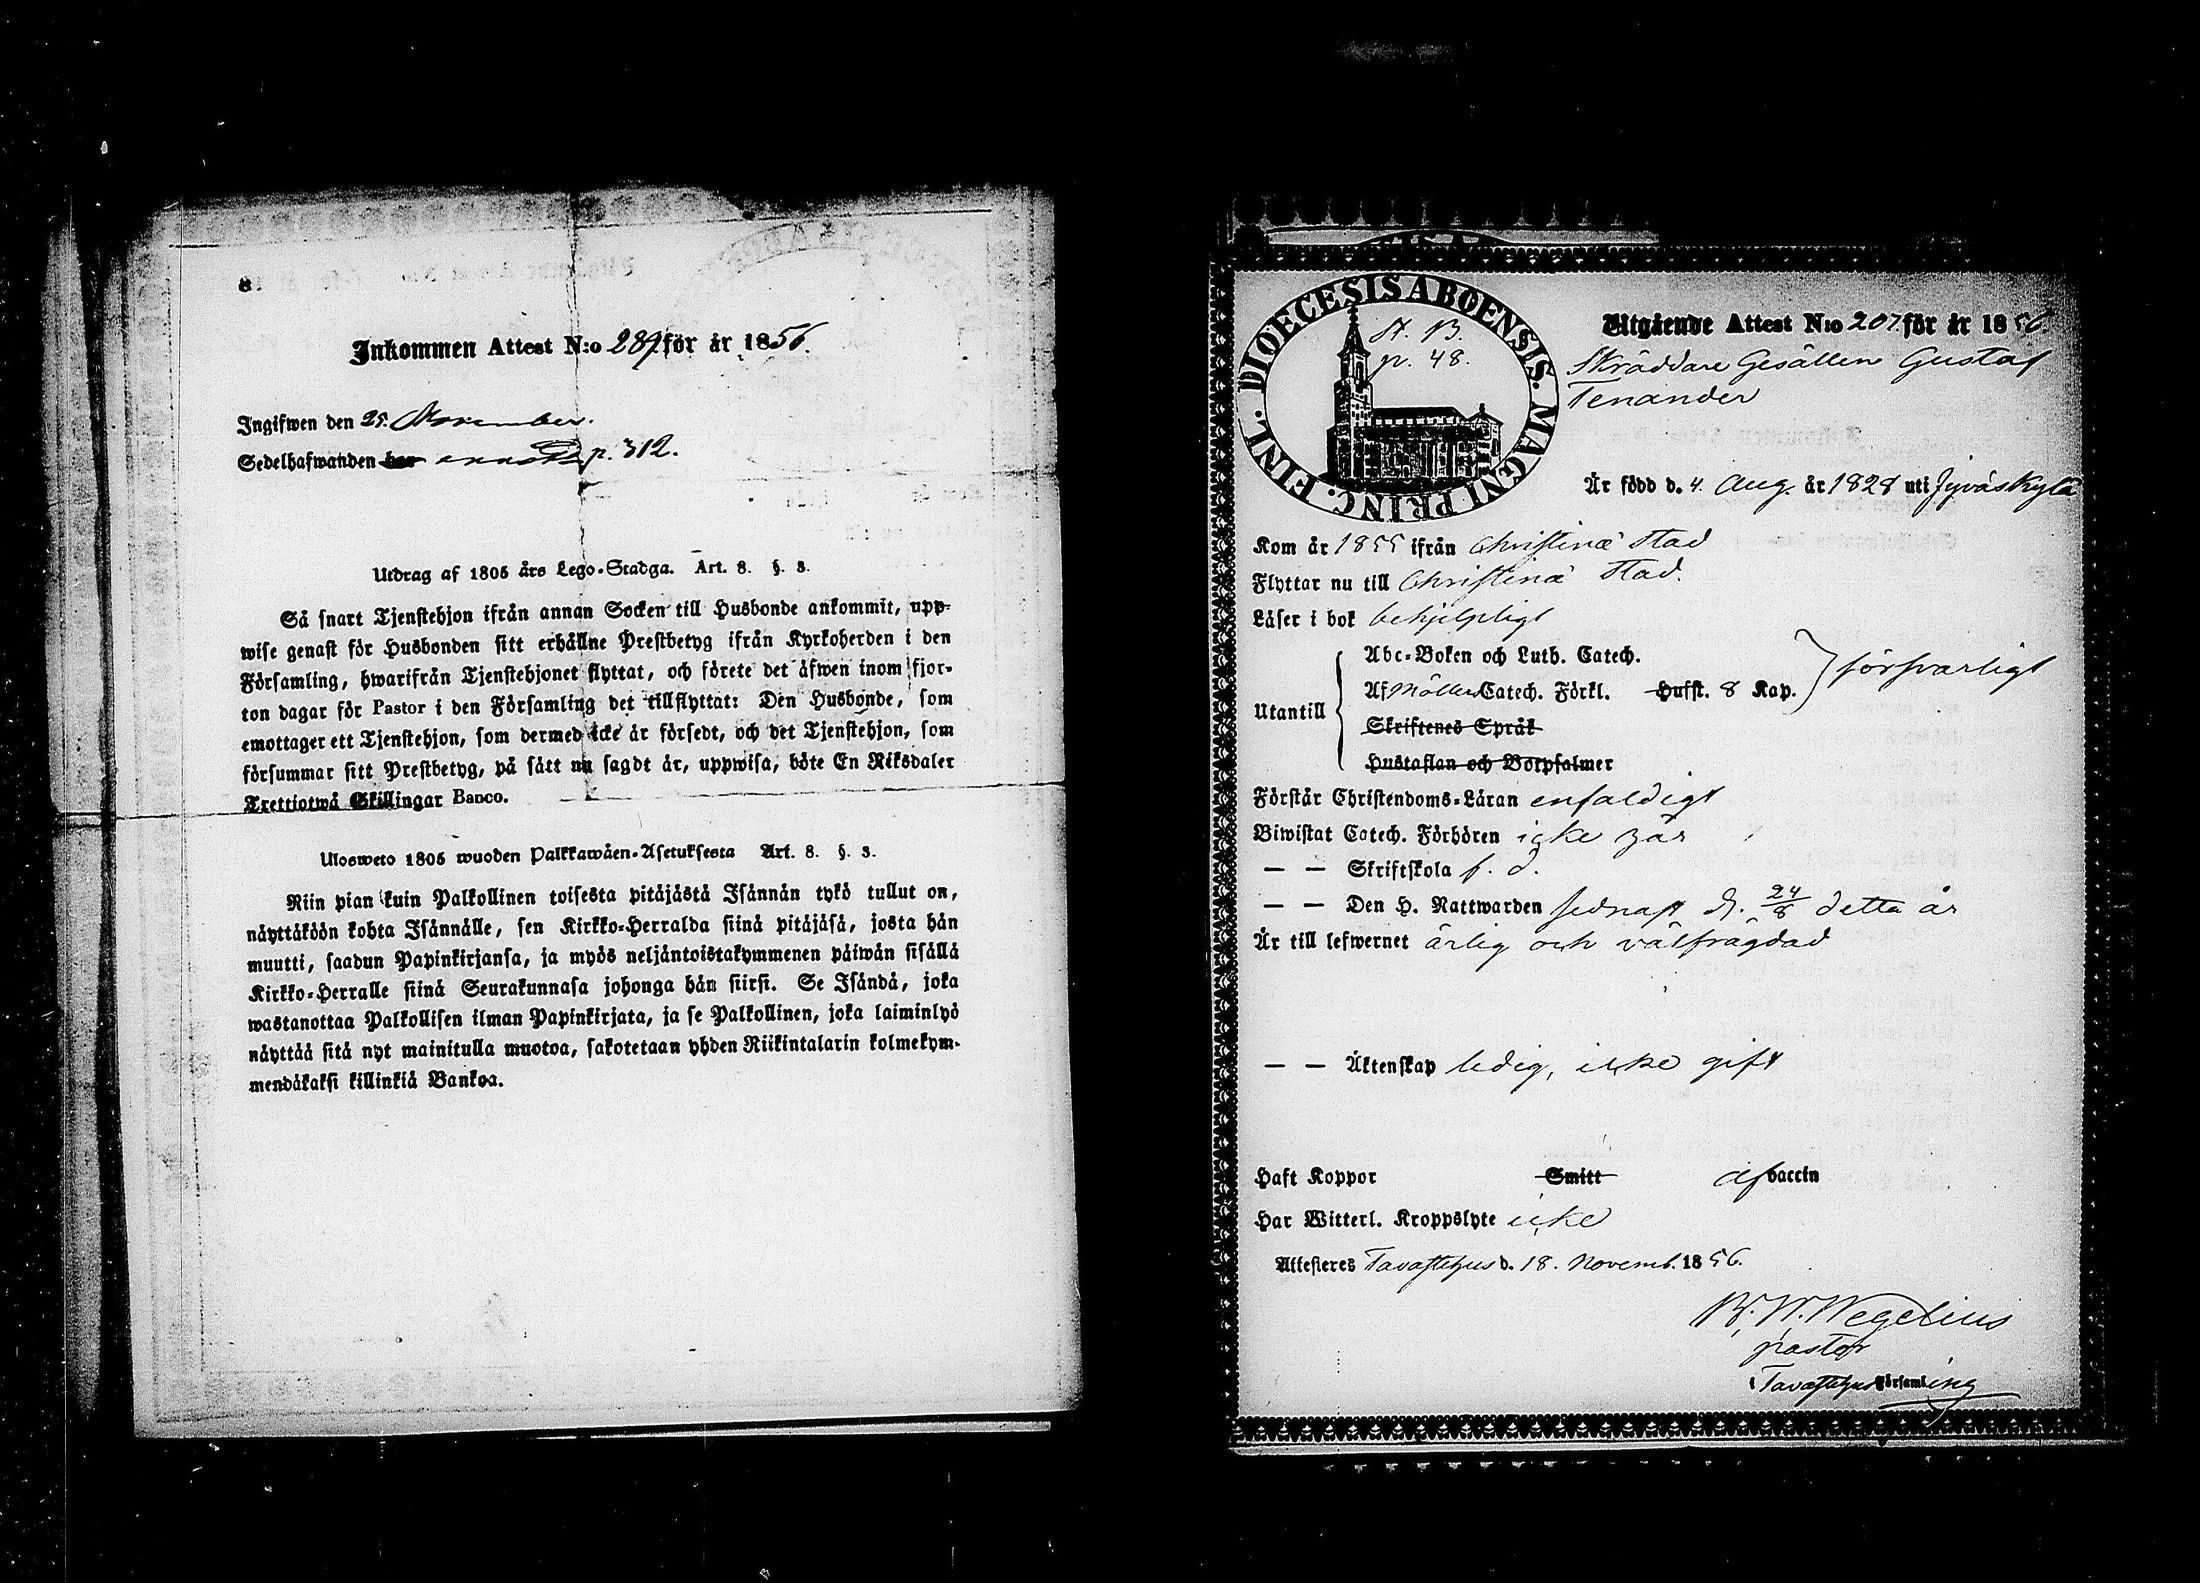 8
Inkommen Attest N:o 289 för år 1856.
Ingifwen den 25. November.
Sedelhafwanden har p. 312.
Utdrag af 1805 års Lego-Stadga. Art. 8. §. 3.
Så snart Tjenstehjon ifrån annan Socken till Husbonde ankommit, upp-
wise genast för Husbonden sitt erhållne Prestbetyg ifrån Kyrkoherden i den
Församling, hwarifrån Tjenstehjonet flyttat, och förete det äfwen inom fjor-
ton dagar för Pastor i den Församling det tillflyttat: Den Husbonde, som
emottager ett Tjenstehjon, som dermed icke är försedt, och det Tjenstehjon, som
försummar sitt Prestbetyg, på sätt nu sagdt är, uppwisa, böte En Riksdaler
Trettiotwå Skillingar Banco.
Ulosweto 1805 wuoden Palkkawäen-Asetuksesta Art. 8. §. 3.
Niin pian kuin Palkollinen toisesta pitäjästä Isännän tykö tullut on,
näyttäköön kohta Isännälle, sen Kirkko-Herralda siinä pitäjäsä, josta hän
muutti, saadun Papinkirjansa, ja myös neljäntoistakymmenen päiwän sisällä
Kirkko-Herralle siinä Seurakunnasa johonga hän siirsi. Se Isändä, joka
wastanottaa Palkollisen ilman Papinkirjata, ja se Palkollinen, joka laiminlyö
näyttää sitä nyt mainitulla muotoa, sakotetaan yhden Riikintalarin kolmekym-
mendäkaksi killinkiä Bankoa.
DIOECESIS ABOENSIS. MAGNI PRINC. FINL.
St. B.
p. 48.
Utgående Attest N:o 207. för år 1856.
Skräddare Gesällen Gustaf
Tenander
Är född d. 4 Aug. år 1828 uti Jyväskylä
Kom år 1855 ifrån Christinæ stad
Flyttar nu till Christinæ stad.
Läser i bok behjelpligt
Utantill
Abc-Boken och Luth. Catech.
Af Möllers Catech. Förkl. Hufst. 8 Kap.
försvarligt
Skriftenes Språk
Hustaflan och Botpsalmer
Förstår Christendoms-Läran enfaldigt
Biwistat Catech. Förhören icke här
— — Skriftskola f. d.
— — Den H. Nattwarden sednast d. 24/8 detta år
Är till lefwernet ärlig och välfrägdad
— — Äktenskap ledig, icke gift
Haft Koppor Smitt af vaccin
Har Witterl. Kroppslyte icke
Attesteres Tavastehus d. 18. Novemb. 1856.
B. W. Wegelius
pastor
i Tavastehus Församling